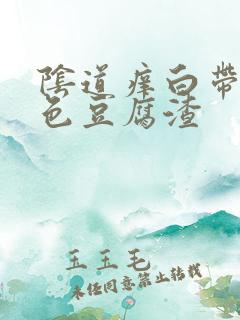 陰道痒白帶
色豆腐渣
玉玉毛
未经同意禁止转载